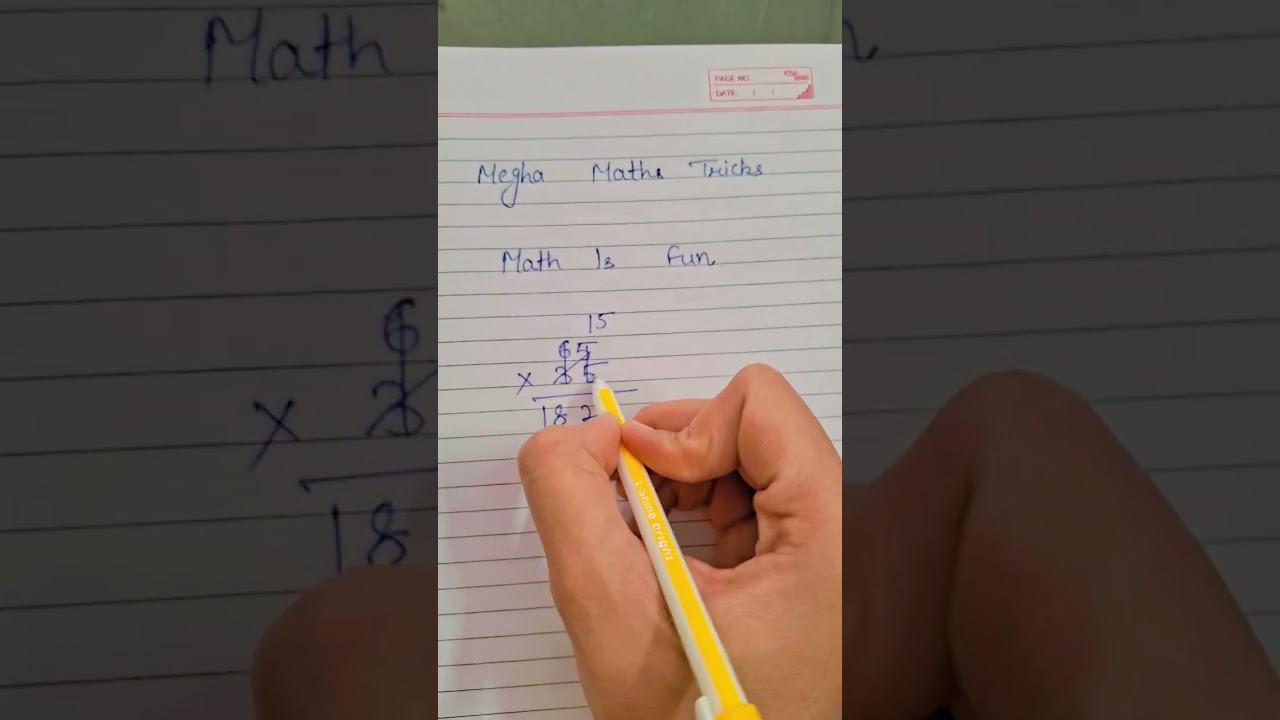 PAGE NO.
DATE: / /
Megha Maths Tricks
Math Is Fun
15
65
x 35
182